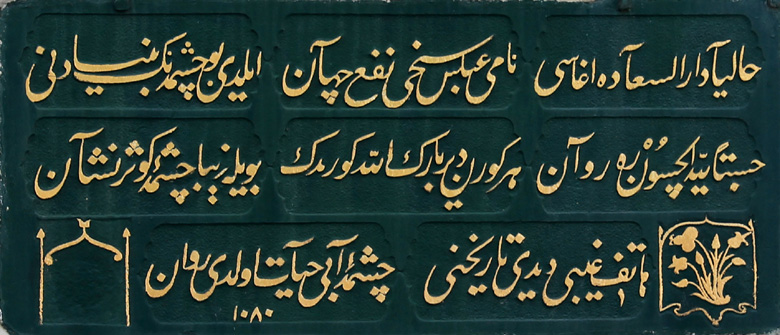 حالیآ دار السعآده اغاسی نامی عباس سخی نفع جهآن ایلدی بو چشمه‌نك بنیادنی
حسبتا للّه ایچسونْ ره روآن هر كورن دیر بارك اللّه كورمدك بویله زیبا چشمۀ كوثر نشآن
هاتف غیبی دیدی تاریخنی چشمۀ آبی حیآت اولدی روان
١٠٨٠